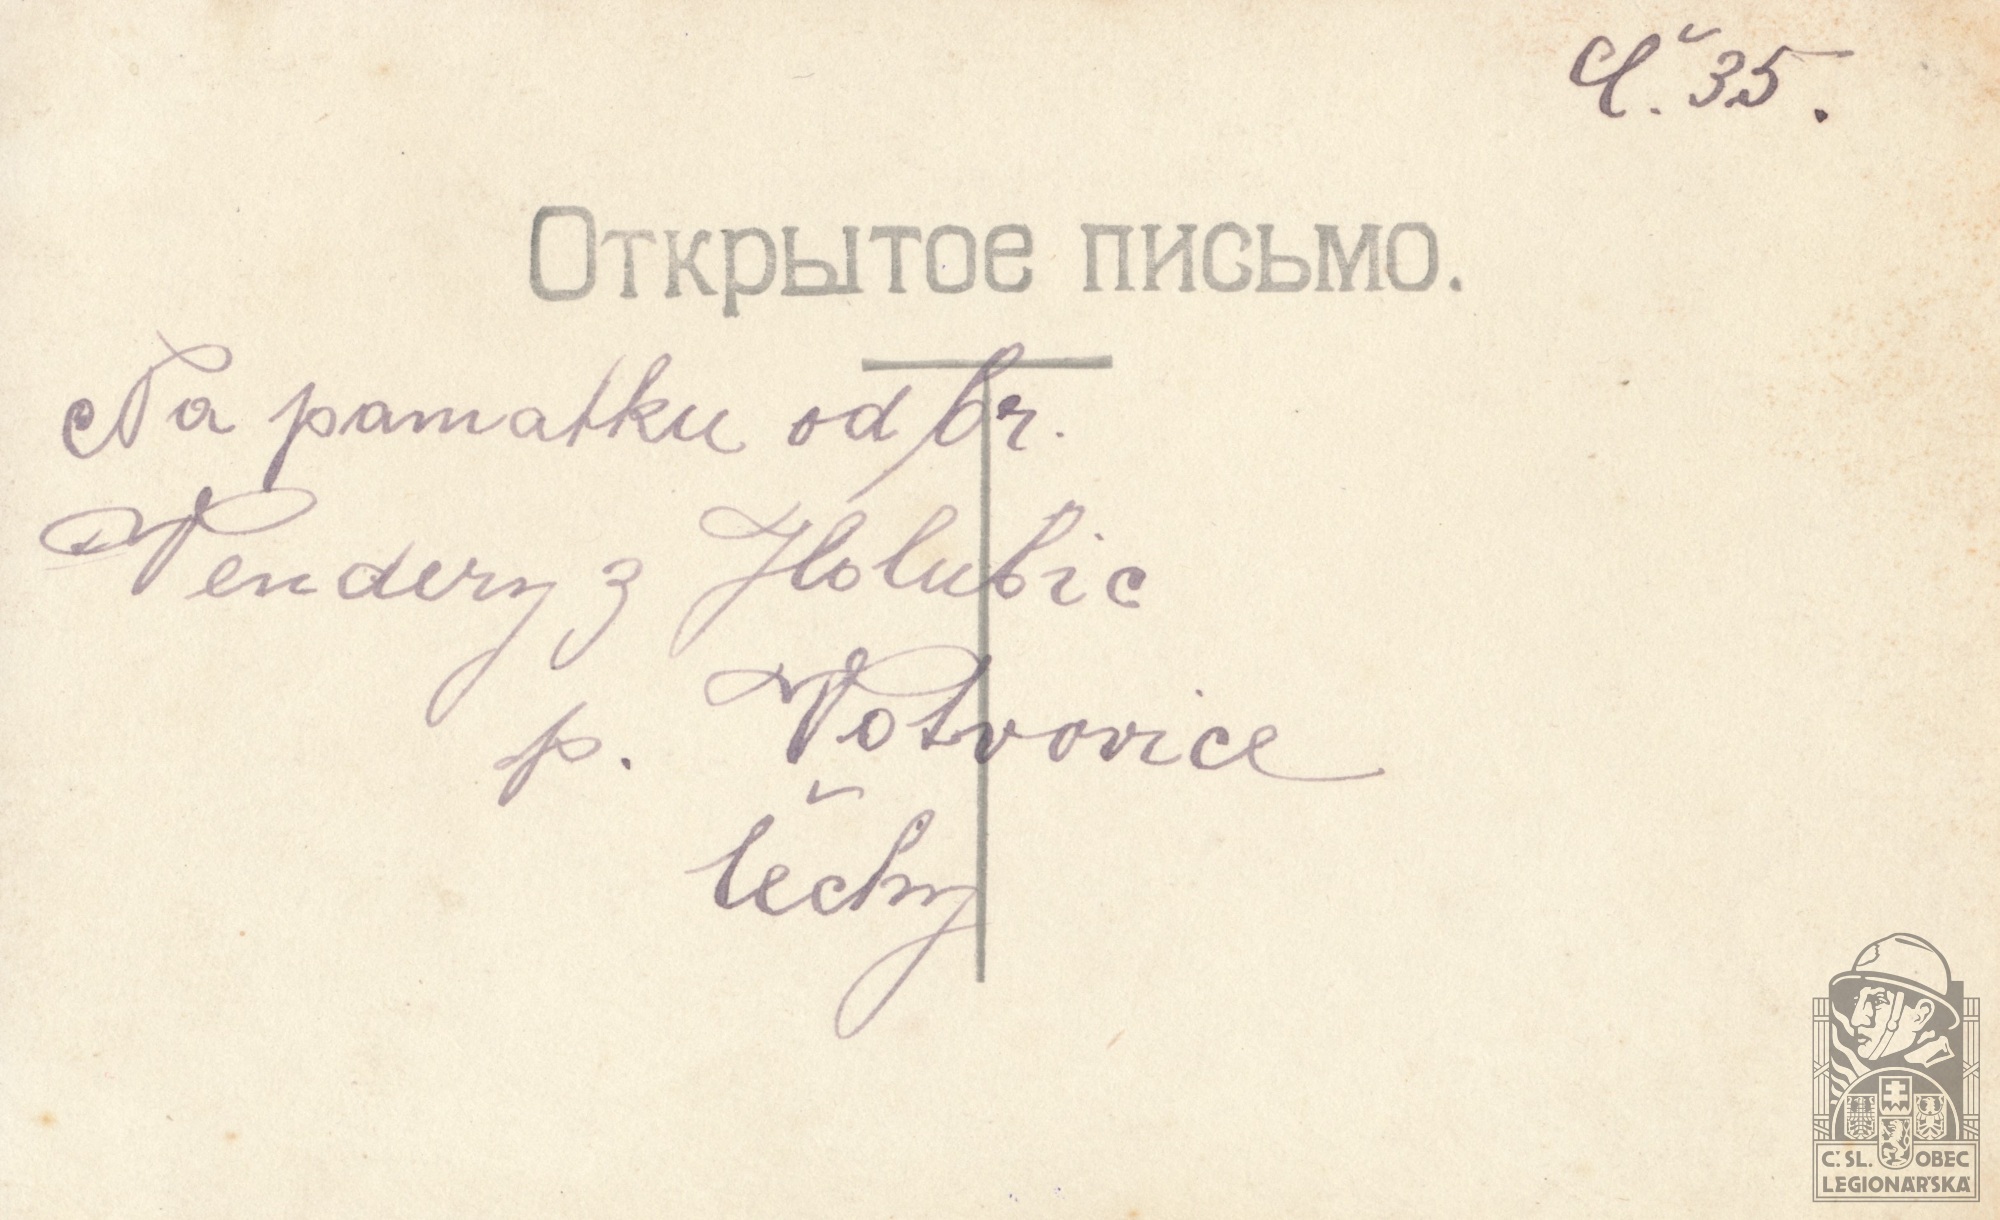 Č. 35.
Открытое письмо.
Na pamatku od br.
Vendery z Holubic
p. Votvovice
Čechy
Č. SL. OBEC
LEGIONÁŘSKÁ